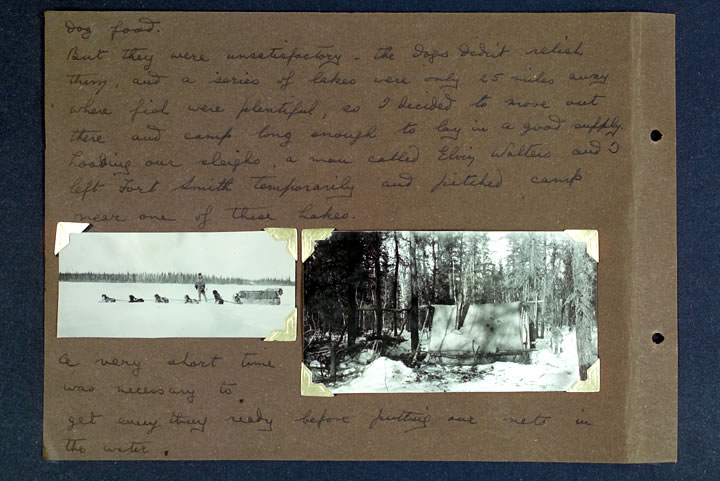 Dog food.
But they were unsatisfactory - the dogs didn't relish
them, and a series of lakes were only 25 miles away
where fish were plentiful, so I decided to move out
there and camp long enough to lay in a good supply.
Loading our sleighs, a man called Elvin Walters and I
left Fort Smith temporarily and pitched camp
near one of these Lakes.
A very short time
was necessary to
get every thing ready before putting our nets in
the water.